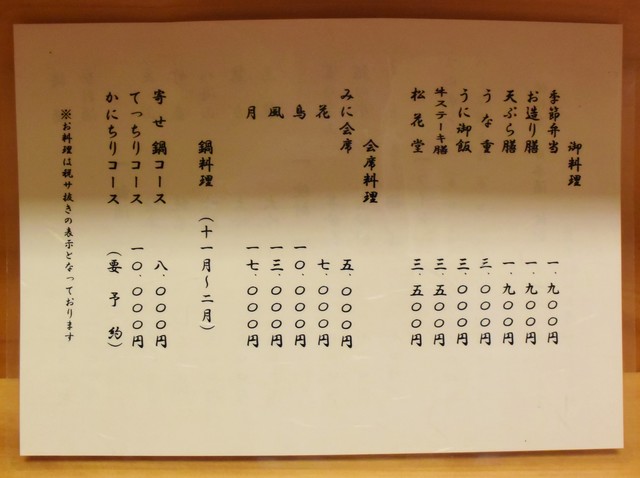 御料理
季節弁当 一.九〇〇円
お造り膳 一.九〇〇円
天ぷら膳 一.九〇〇円
うな重 三.〇〇〇円
うに御飯 三.〇〇〇円
牛ステーキ膳 三.五〇〇円
松花堂 三.五〇〇円
会席料理
みに会席 五.〇〇〇円
花 七.〇〇〇円
鳥 一〇.〇〇〇円
風 一三.〇〇〇円
月 一七.〇〇〇円
鍋料理 (十一月~二月)
寄せ鍋コース 八.〇〇〇円
てっちりコース 一〇.〇〇〇円
かにちりコース (要予約)
※お料理は税サ抜きの表示となっております